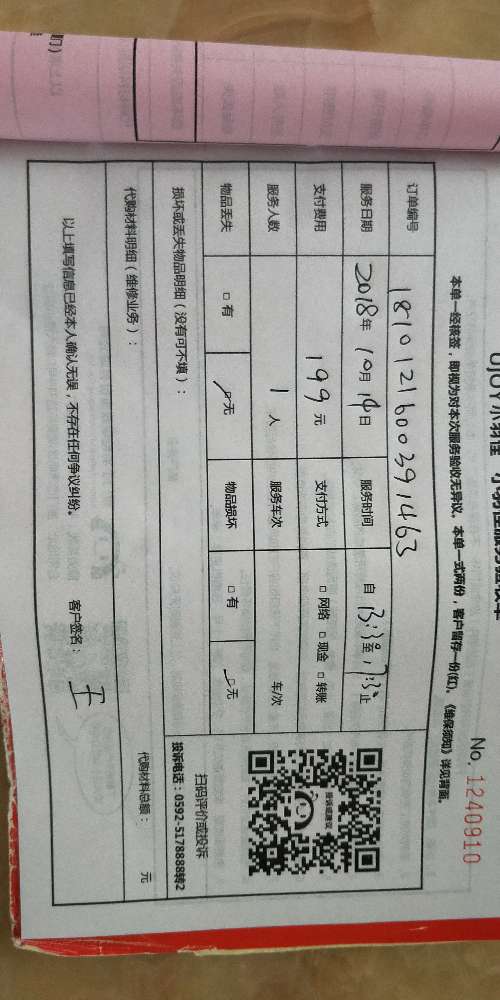 No. 1240910
本单一经核签，即视为对本次服务验收无异议。本单一式两份，客户留存一份(红)。《维保须知》详见背面。
订单编号 181012160039 1463
服务日期 2018年 10月 14日 服务时间 自 13:30至 17:30止
支付费用 199 元 支付方式 □ 网络 □ 现金 □ 转账
服务人数 1 人 服务车次 车/次
物品丢失 □ 有 □ 无 物品损坏 □ 有 □ 无
损坏或丢失物品明细（没有可不填）：
代购材料明细（维修业务）： 代购材料总额： 元
以上填写信息已经本人确认无误，不存在任何争议纠纷。 客户签名： 王
投诉或建议
扫码评价或投诉
投诉电话：0592-5178888转2